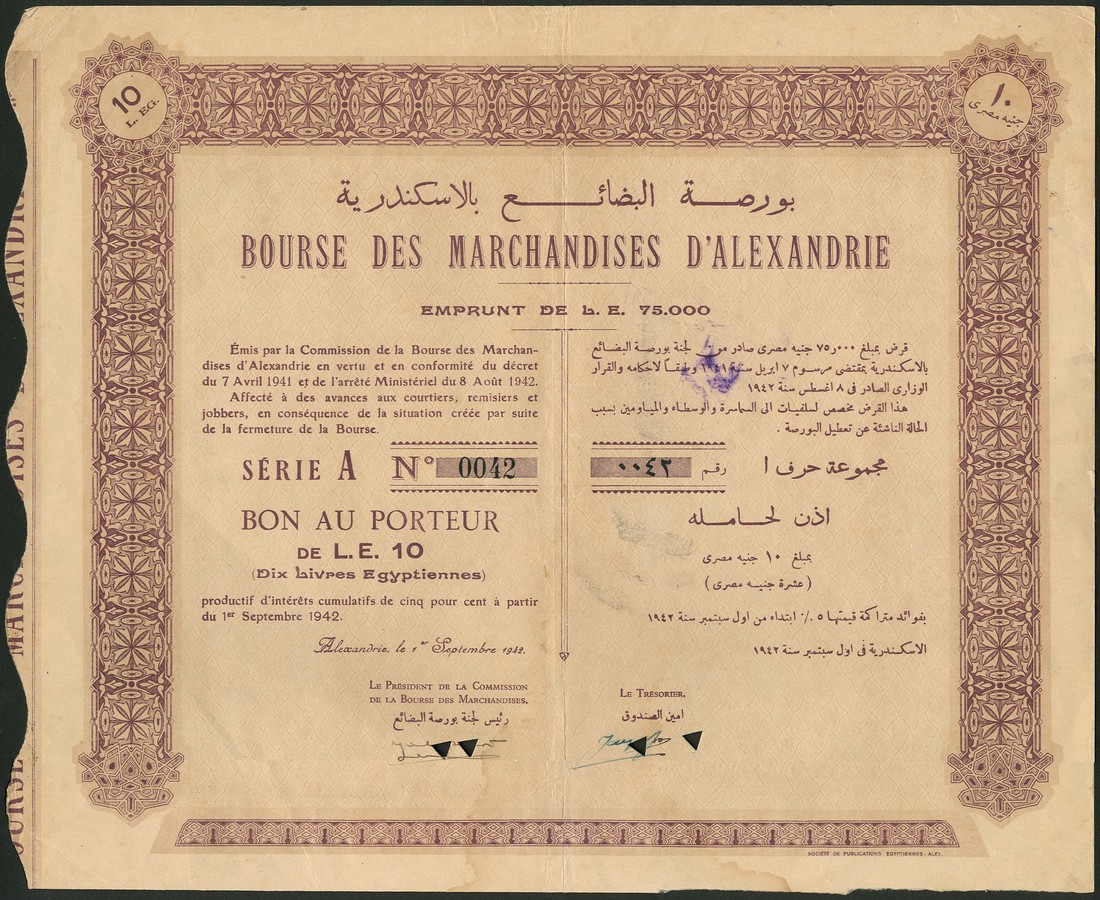 10
L. EG.
١٠
جنيه مصرى
بورصة البضائع بالاسكندرية
BOURSE DES MARCHANDISES D'ALEXANDRIE
EMPRUNT DE L. E. 75.000
Émis par la Commission de la Bourse des Marchan-
dises d'Alexandrie en vertu et en conformité du décret
du 7 Avril 1941 et de l'arrêté Ministériel du 8 Août 1942.
Affecté à des avances aux courtiers, remisiers et
jobbers, en conséquence de la situation créée par suite
de la fermeture de la Bourse.
قرض بمبلغ ٧٥٫٠٠٠ جنيه مصرى صادر من لجنة بورصة البضائع
بالاسكندرية بمقتضى مرسوم ٧ ابريل سنة ١٩٤١ وطبقاً لاحكامه والقرار
الوزارى الصادر فى ٨ اغسطس سنة ١٩٤٢
هذا القرض مخصص لسلفيات الى السماسرة والوسطاء والمياومين بسبب
الحالة الناشئة عن تعطيل البورصة .
SÉRIE A N° 0042
مجموعة حرف ا رقم ٠٠٤٢
BON AU PORTEUR
DE L.E. 10
(Dix Livres Egyptiennes)
productif d'intérêts cumulatifs de cinq pour cent à partir
du 1er Septembre 1942.
Alexandrie, le 1er Septembre 1942.
اذن لحامله
بمبلغ ١٠ جنيه مصرى
(عشرة جنيه مصرى)
بفوائد متراكمة قيمتها ٥ ٪ ابتداء من اول سبتمبر سنة ١٩٤٢
الاسكندرية فى اول سبتمبر سنة ١٩٤٢
LE PRÉSIDENT DE LA COMMISSION
DE LA BOURSE DES MARCHANDISES,
رئيس لجنة بورصة البضائع
LE TRÉSORIER,
امين الصندوق
SOCIÉTÉ DE PUBLICATIONS EGYPTIENNES - ALEX.